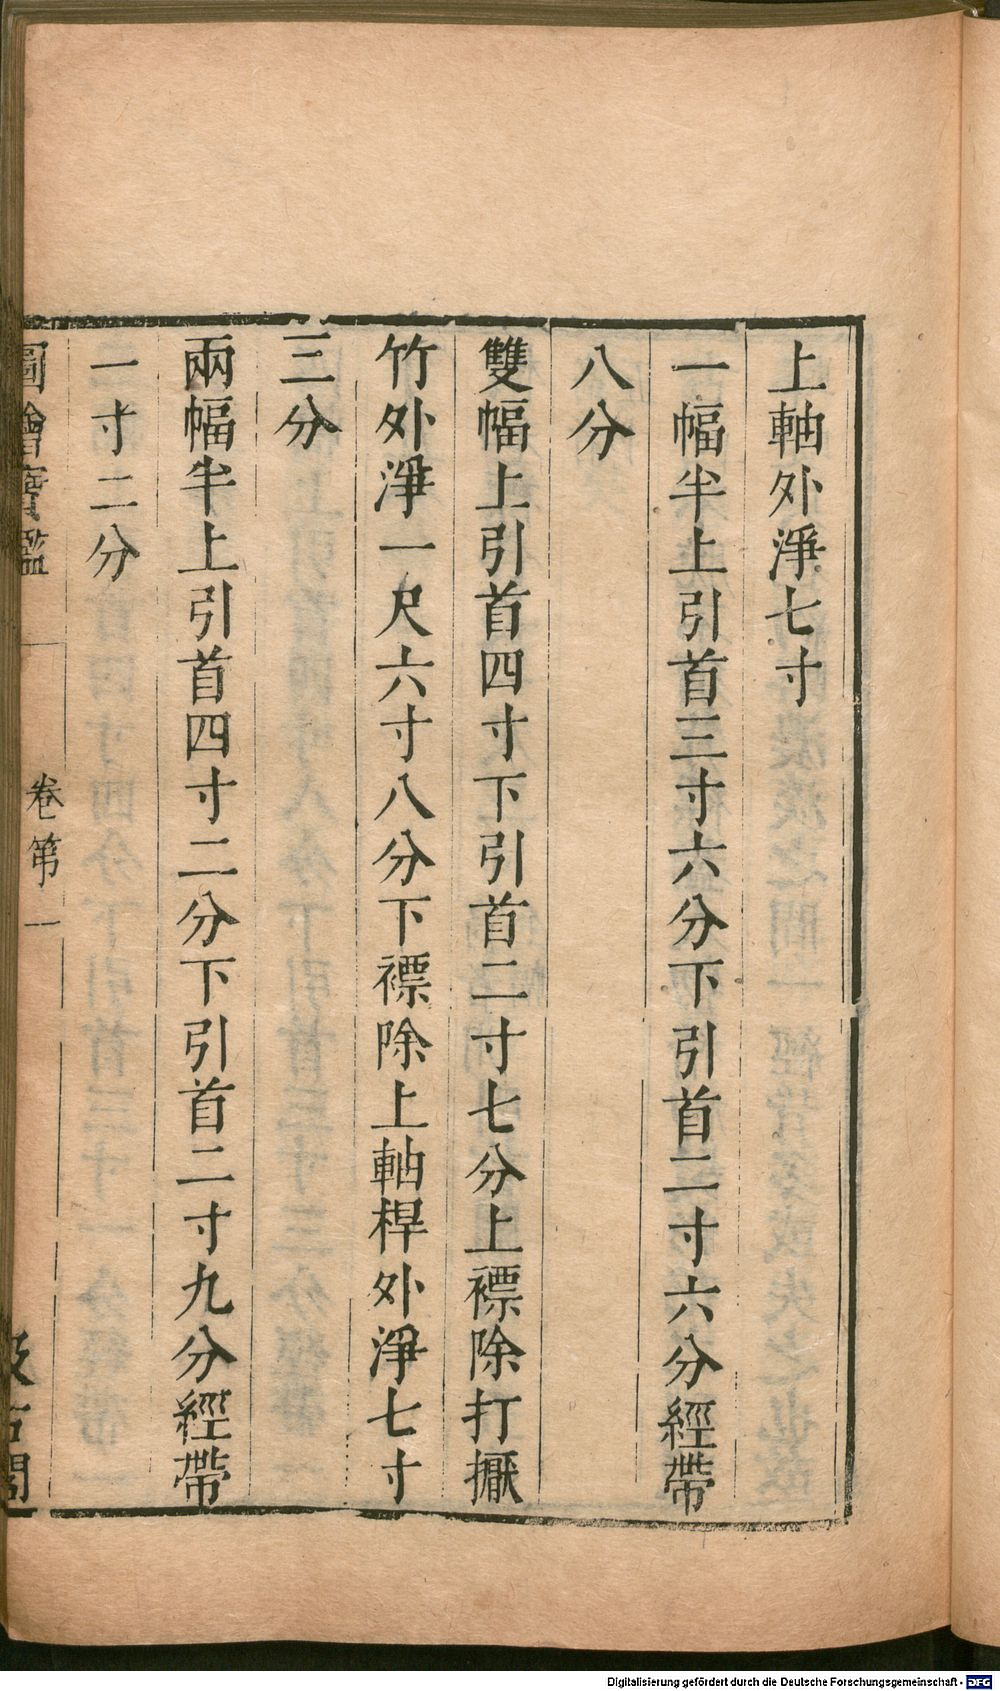 上軸外淨七寸
一幅半上引首三寸六分下引首二寸六分經帶
八分
雙幅上引首四寸下引首二寸七分上褾除打擫
竹外淨一尺六寸八分下褾除上軸桿外淨七寸
三分
兩幅半上引首四寸二分下引首二寸九分經帶
一寸二分
圖繪寶鑑 卷第一 汲古閣
Digitalisierung gefördert durch die Deutsche Forschungsgemeinschaft - DFG